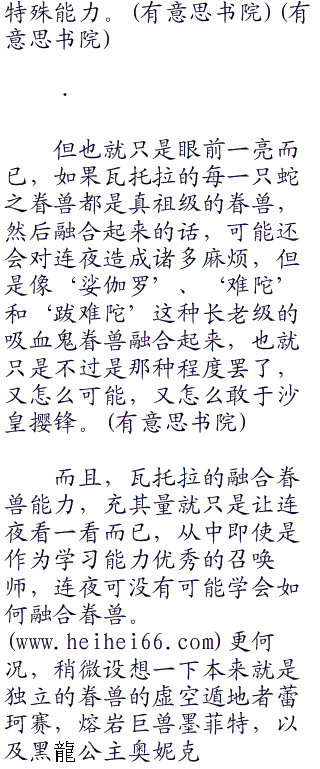 特殊能力。(有意思书院)(有
意思书院)
.
但也就只是眼前一亮而
已，如果瓦托拉的每一只蛇
之眷兽都是真祖级的眷兽，
然后融合起来的话，可能还
会对连夜造成诸多麻烦，但
是像‘娑伽罗’、‘难陀’
和‘跋难陀’这种长老级的
吸血鬼眷兽融合起来，也就
只是不过是那种程度罢了，
又怎么可能，又怎么敢于沙
皇撄锋。(有意思书院)
而且，瓦托拉的融合眷
兽能力，充其量就只是让连
夜看一看而已，从中即使是
作为学习能力优秀的召唤
师，连夜可没有可能学会如
何融合眷兽。
(www.heihei66.com)更何
况，稍微设想一下本来就是
独立的眷兽的虚空遁地者蕾
珂赛，熔岩巨兽墨菲特，以
及黑龍公主奥妮克